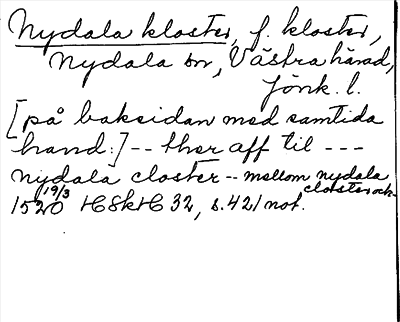 Nydala kloster, f. kloster,
Nydala sn, Västra härad,
Jönk. l.
[på baksidan med samtida
hand:] -- ther aff til ---
nydala closter -- mellom nydala
closter och-
1520 19/3 HSkH 32, s. 421 not.